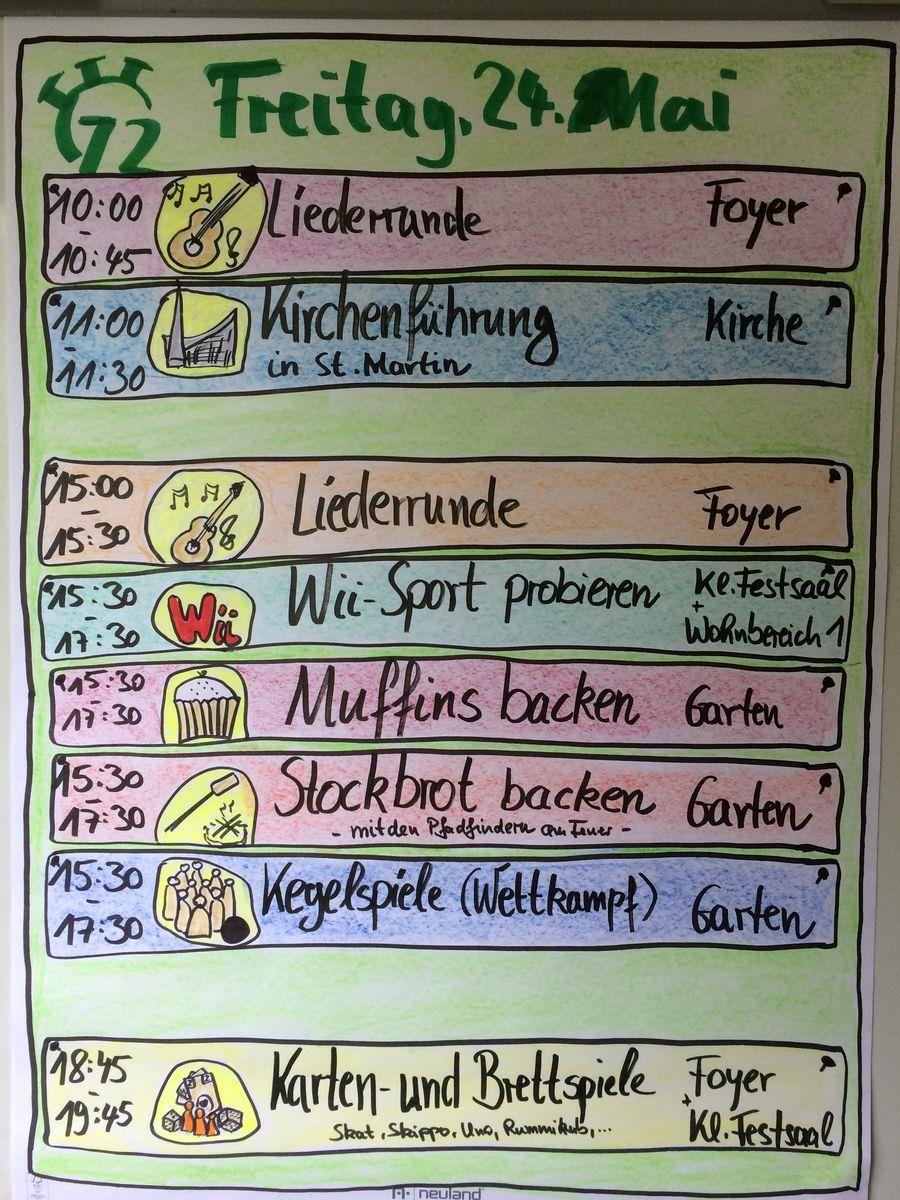 72
Freitag, 24. Mai
10:00 - 10:45 Liederrunde Foyer
11:00 - 11:30 Kirchenführung Kirche
in St. Martin
15:00 - 15:30 Liederrunde Foyer
15:30 - 17:30 Wii Wii-Sport probieren Kl. Festsaal
+ Wohnbereich 1
15:30 - 17:30 Muffins backen Garten
15:30 - 17:30 Stockbrot backen Garten
- mit den Pfadfindern am Feuer -
15:30 - 17:30 Kegelspiele (Wettkampf) Garten
18:45 - 19:45 Karten- und Brettspiele Foyer
+ Kl. Festsaal
Skat, Skippo, Uno, Rummikub,...
neuland